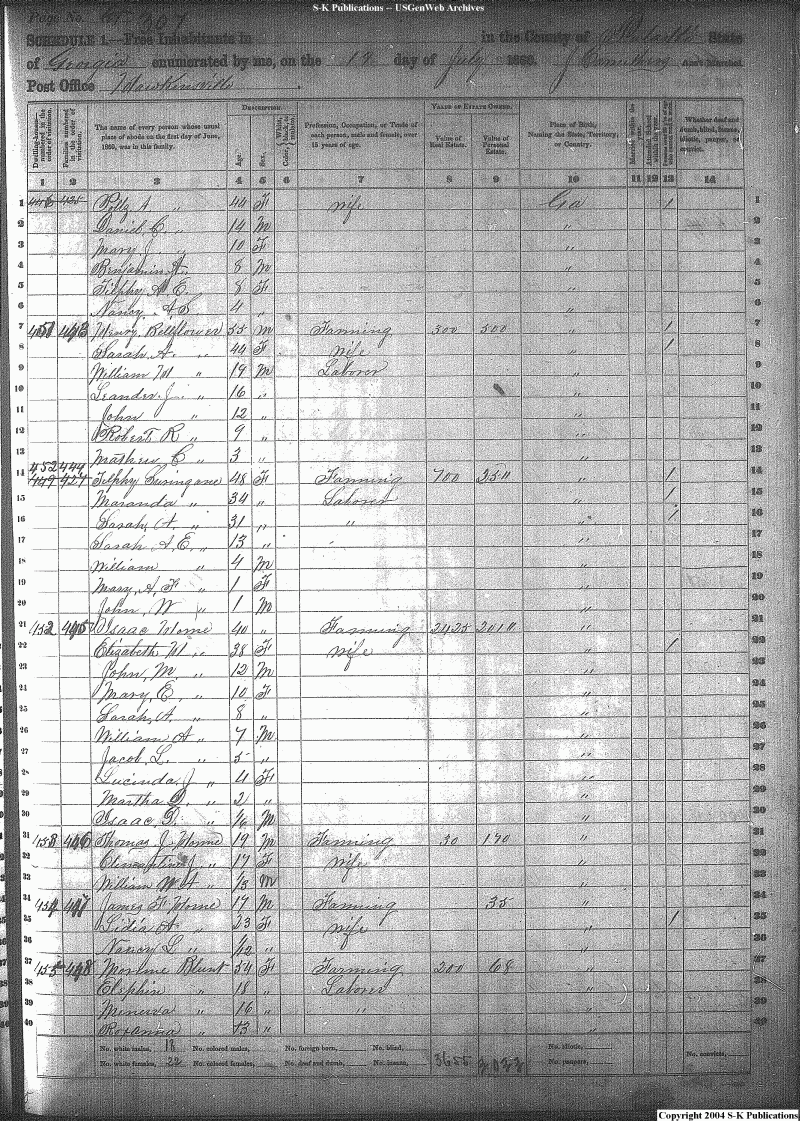 S-K Publications -- USGenWeb Archives
Page No.
SCHEDULE 1.—Free Inhabitants in in the County of Pulaski State
of Georgia enumerated by me, on the 12 day of July 1860. Ass't Marshal.
Post Office Hawkinsville.
Dwelling-houses— numbered in the order of visitation.
Families numbered in the order of visitation.
The name of every person whose usual place of abode on the first day of June, 1860, was in this family.
DESCRIPTION
Age.
Sex.
Color, White, black, or mulatto.
Profession, Occupation, or Trade of each person, male and female, over 15 years of age.
VALUE OF ESTATE OWNED.
Value of Real Estate.
Value of Personal Estate.
Place of Birth, Naming the State, Territory, or Country.
Married within the year.
Attended School within the year.
Whether deaf and dumb, blind, insane, idiotic, pauper, or convict.
1 2 3 4 5 6 7 8 9 10 11 12 13 14
1 A " 44 F wife Ga / 1
2 Daniel C. " 14 M " 2
3 Mary J. " 10 F " 3
4 Benjamin " 8 M " 4
5 Zilphy A E. 8 F 5
6 Nancy A S. 4 " " 6
7 Henry Bellflower 55 M Farming 300 500 " / 7
8 Sarah A. " 44 F wife " / 8
9 William M " 19 M Laborer " 9
10 Leander J " 16 " " 10
11 John " 12 " " 11
12 Robert R " 9 " " 12
13 Mathew C " 3 " " 13
452 444
14 449 427 Zilphy 48 F Farming 700 " / 14
15 Maranda " 34 " Laborer " / 15
16 Sarah A. " 31 " " " / 16
17 Sarah A. E. " 13 " " 17
18 William " 4 M " 18
19 Mary A F " 1 F " 19
20 John W " 1 M "
21 152 445 Isaac Horne 40 " Farming 2425 "
22 Elizabeth M " 38 F wife " / 22
John M. " 12 M " 23
Mary E " 10 F " 24
Sarah A. " 8 " " 25
26 William A " 7 M " 26
27 Jacob L. " 5 " " 27
28 Lucinda J " 4 F " 28
29 Martha D. " 2 " " 29
30 Isaac D. " M " 30
31 153 446 Thomas J. Horne 19 M Farming 50 170 " 31
32 " 17 F wife " 32
33 William W A " M " 33
454 447 James F. Horne 17 M Farming 35 "
35 Lidia A " 23 F wife " / 35
36 Nancy L " " " 36
37 155 448 Blunt 54 F Farming 200 68 " 37
38 Elephin " 18 " Laborer " 38
39 Minerva " 16 " " " 39
40 Roxanna " 13 " " 40
No. white males, 18 No. colored males, No. foreign born, No. blind, No. idiotic,
No. white females, 22 No. colored females, No. deaf and dumb, No. insane, 3655 No. paupers, No. convicts,
Copyright 2004 S-K Publications